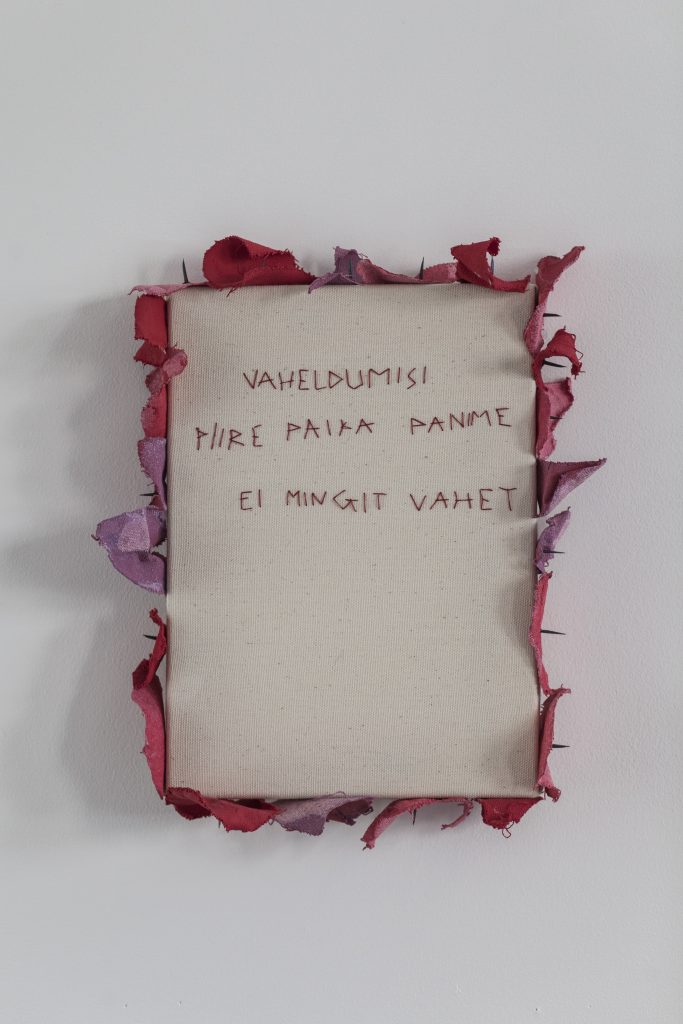 VAHELDUMISI
PIIRE PAIKA PANIME
EI MINGIT VAHET